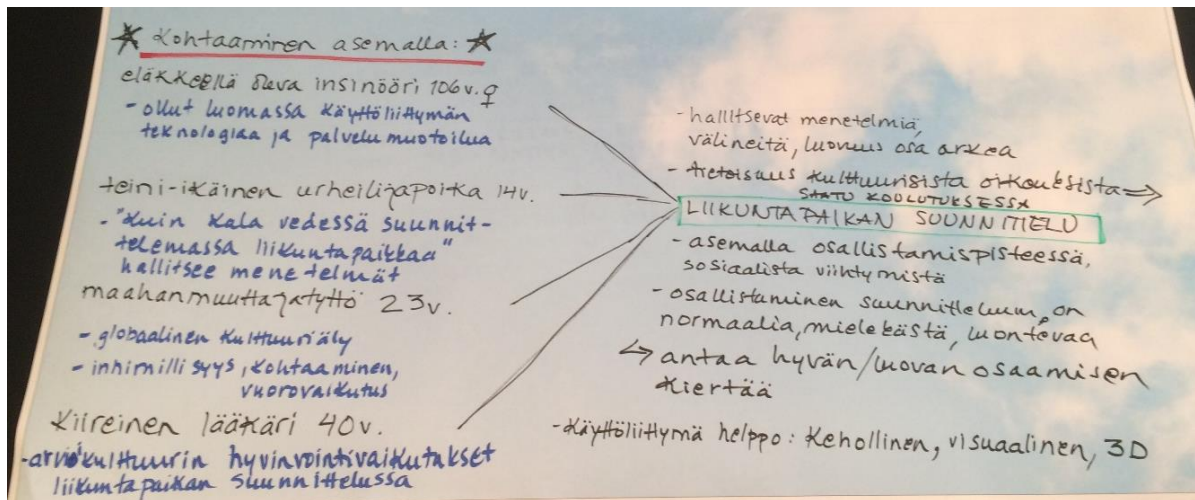 Kohtaaminen asemalla:
eläkkeellä oleva insinööri 106v. ♀
- ollut luomassa käyttöliittymän
teknologiaa ja palvelumuotoilua
teini-ikäinen urheilijapoika 14v.
- "kuin kala vedessä suunnit-
telemassa liikuntapaikkaa"
hallitsee menetelmät
maahanmuuttajatyttö 23v.
- globaalinen kulttuuriäly
- inhimillisyys, kohtaaminen,
vuorovaikutus
Kiireinen lääkäri 40v.
- arvioi kulttuurin hyvinvointivaikutukset
liikuntapaikan suunnittelussa
- hallitsevat menetelmiä,
välineitä, luovuus osa arkea
- tietoisuus kulttuurisista oikeuksista ⇒
SAATU KOULUTUKSESSA
LIIKUNTAPAIKAN SUUNNITTELU
- asemalla osallistamispisteessä,
sosiaalista viihtymistä
- osallistuminen suunnitteluun on
normaalia, mielekästä, luontevaa
↳ antaa hyvän/luovan osaamisen
kiertää
- Käyttöliittymä helppo: Kehollinen, visuaalinen, 3D